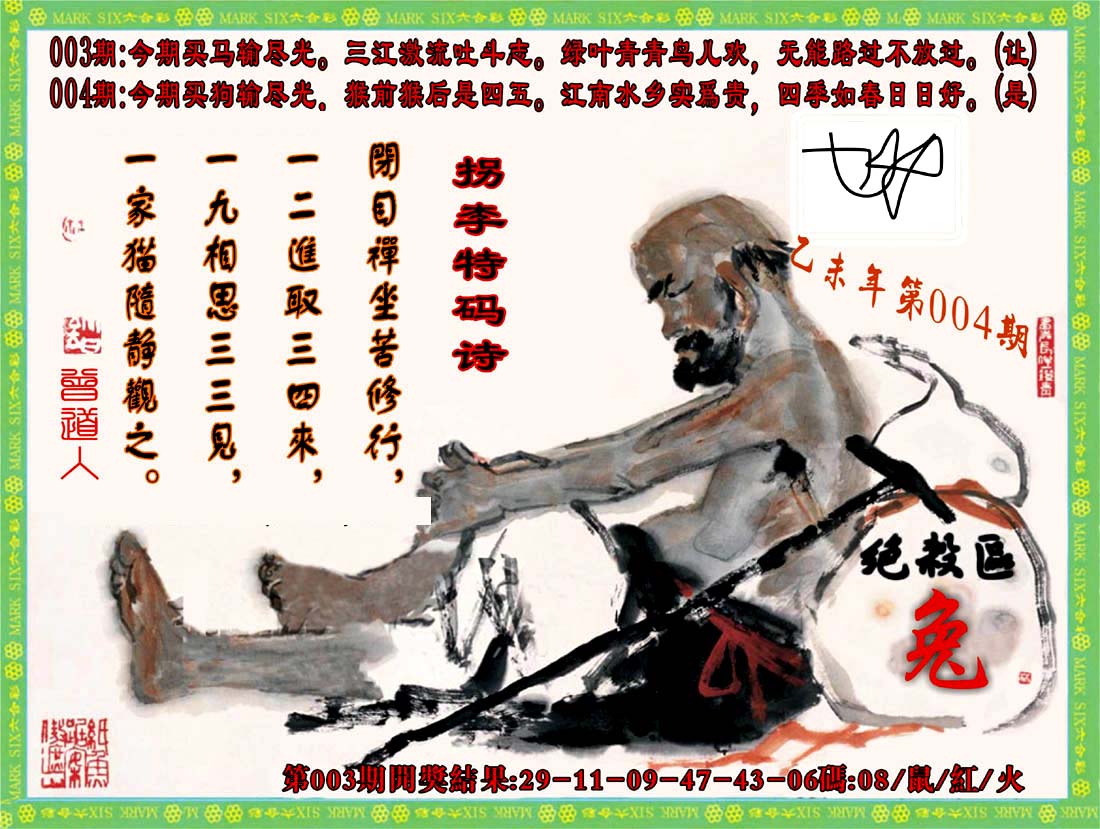 MARK SIX六合彩
003期:今期买马输尽光。三江激流吐斗志。绿叶青青鸟儿欢,无能路过不放过。(让)
004期:今期买狗输尽光.猴前猴后是四五。江南水乡实为贵,四季如春日日好。(是)
乙未年第004期
拐李特码诗
閉目禪坐苦修行,
一二進取三四來,
一九相思三三見,
一家猫隨靜觀之。
曾道人
绝殺區
兔
第003期開獎結果:29-11-09-47-43-06碼:08/鼠/紅/火